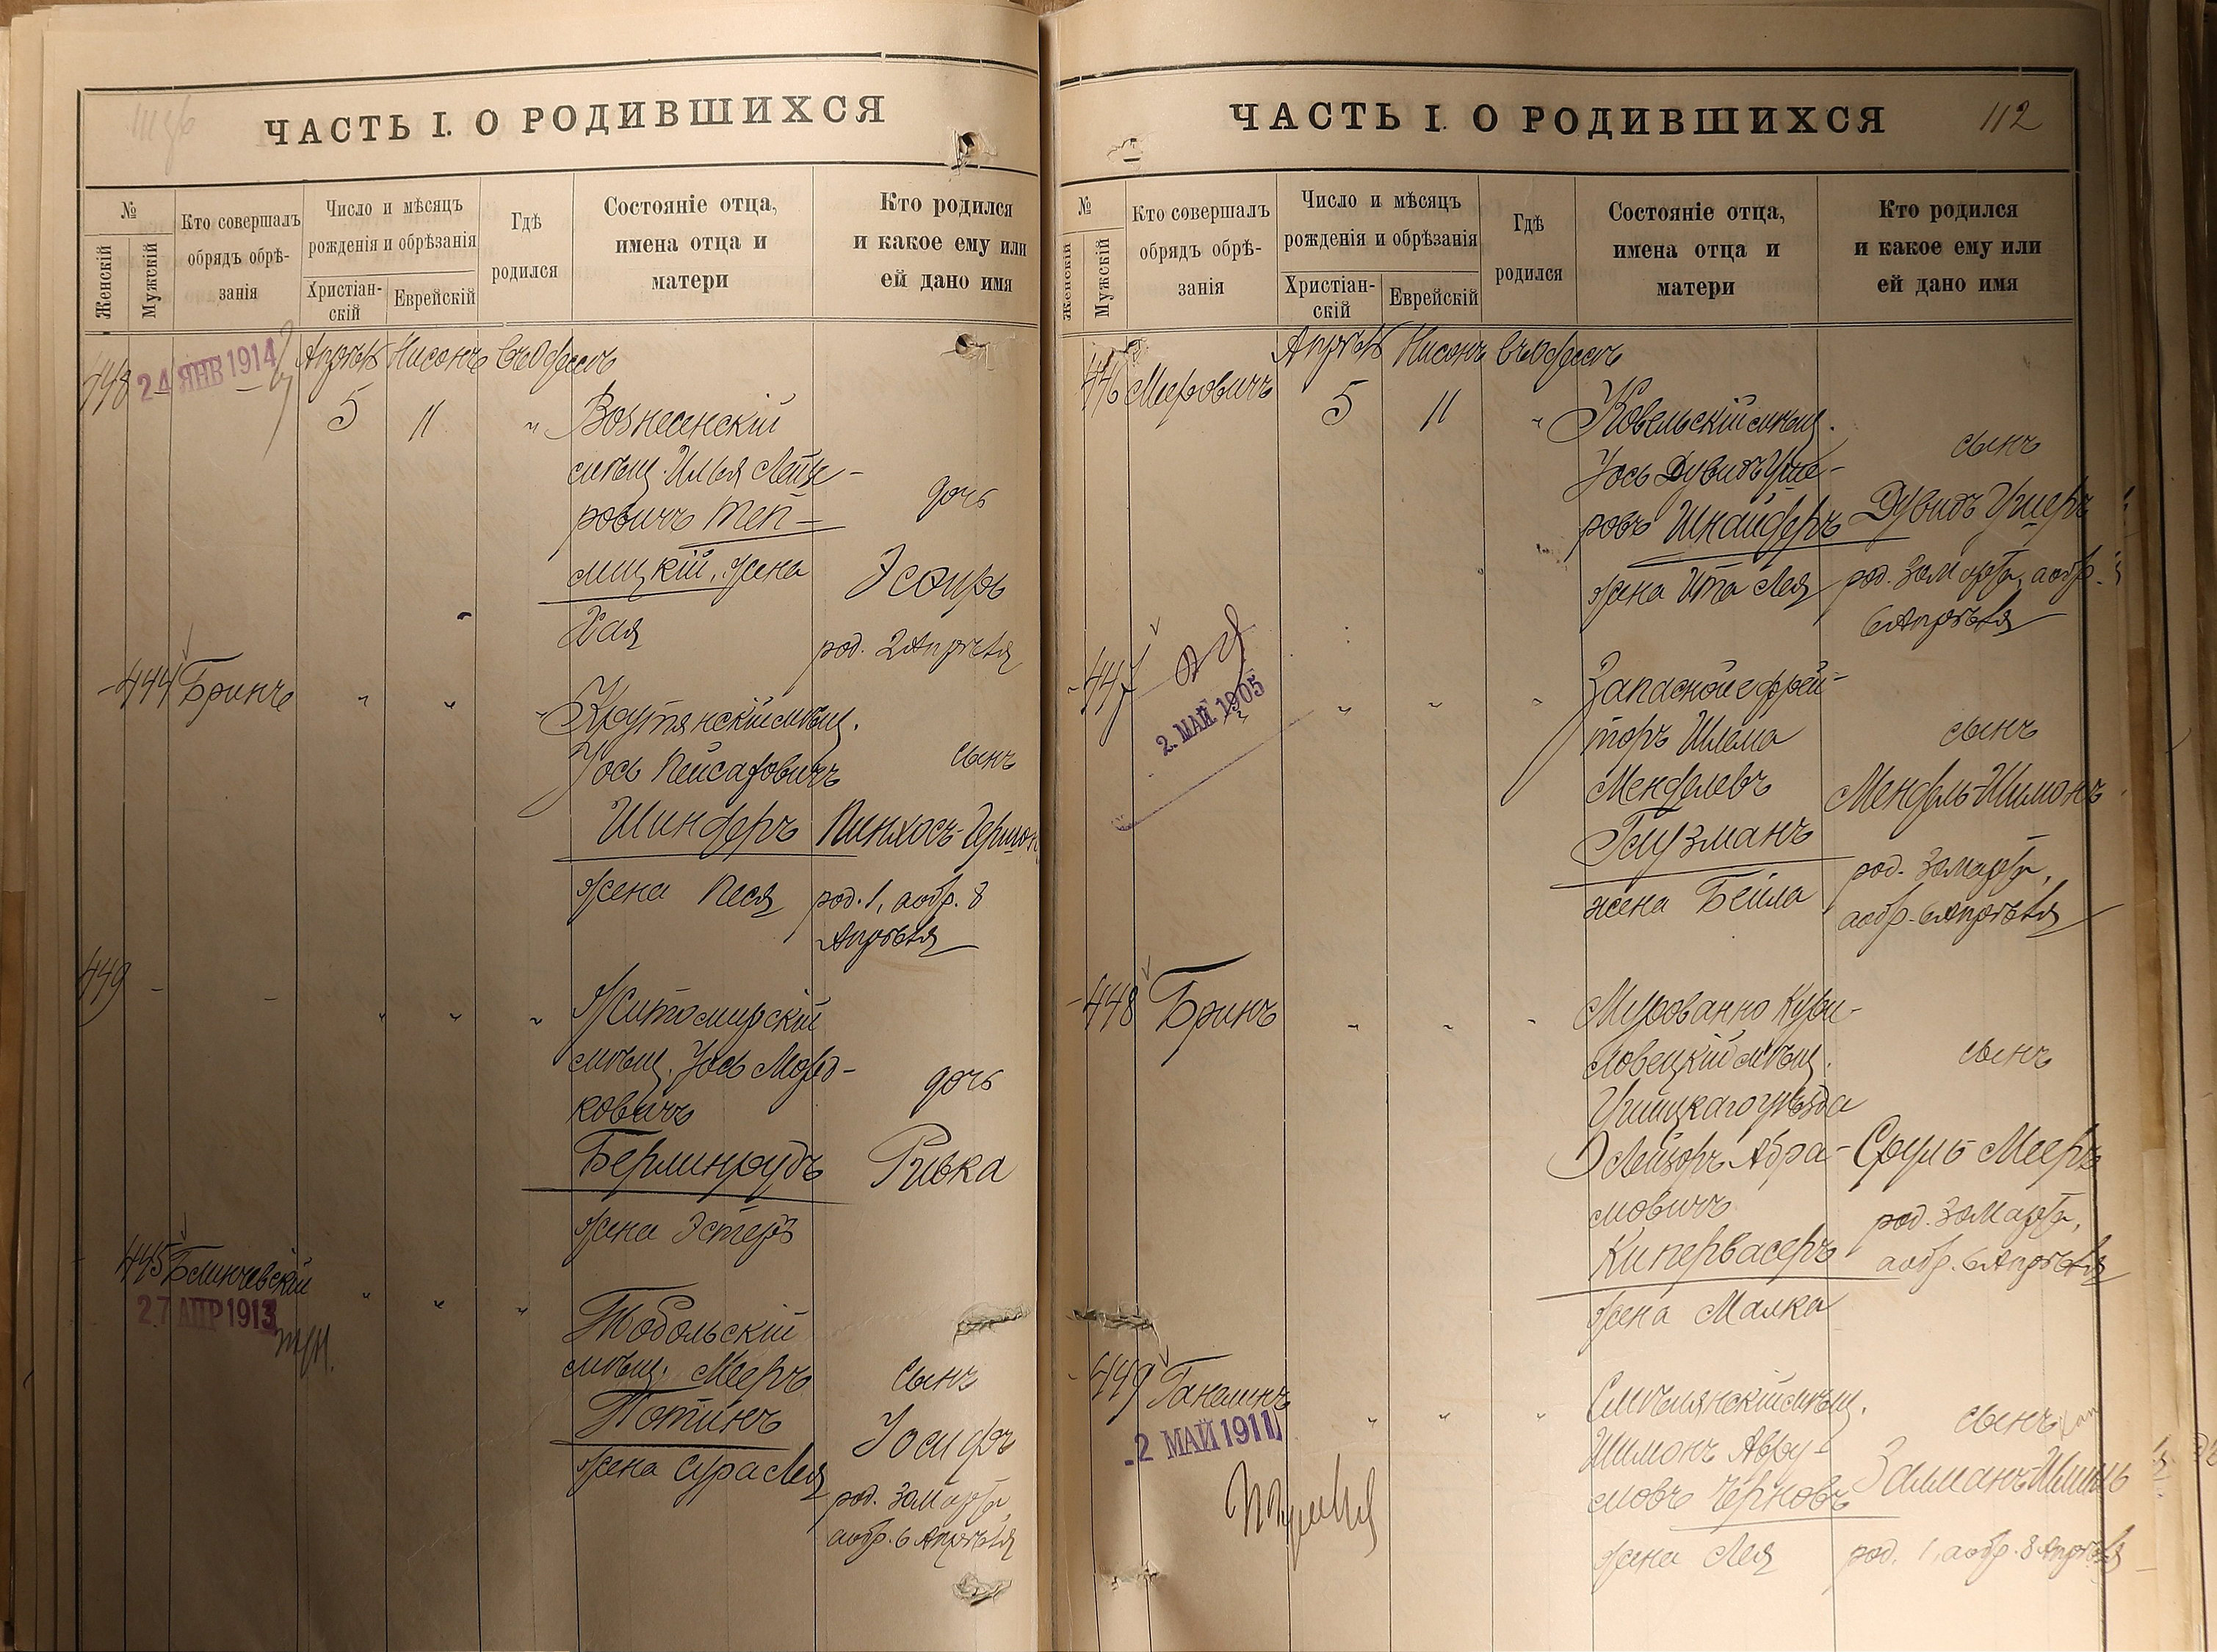 ЧАСТЬ I. О РОДИВШИХСЯ
№
Женскій
Мужскій
Кто совершалъ
обрядъ обрѣ-
занія
Число и мѣсяцъ
рожденія и обрѣзанія
Христіан-
скій
Еврейскій
Гдѣ
родился
Состояніе отца,
имена отца и
матери
Кто родился
и какое ему или
ей дано имя
448
24 ЯНВ 1914
Апрѣль Нисонъ въ Одессѣ
5 11 "
Вознесенскій
мѣщ. Илья Лейзе-
ровичъ Теп-
лицкій, жена
Хая
дочь
Эсѳирь
род. 2 Апрѣля
444 Бринъ " " "
Крутянскій мѣщ.
Іось Пейсаховичъ
Шиндеръ
жена Песя
сынъ
Пинхосъ-Гершон
род. 1, аобр. 8
Апрѣля
449 - - " " "
Житомирскій
мѣщ. Іось Морд-
ковичъ
Берлинрудъ
жена Эстеръ
дочь
Ривка
445 Блинчевскій " " "
27 АПР 1913
Тобольскій
мѣщ. Мееръ
Потинъ
жена Сура Лея
сынъ
Іосифъ
род. 30 Марта,
аобр. 6 Апрѣля
ЧАСТЬ I. О РОДИВШИХСЯ
112
№
Женскій
Мужскій
Кто совершалъ
обрядъ обрѣ-
занія
Число и мѣсяцъ
рожденія и обрѣзанія
Христіан-
скій
Еврейскій
Гдѣ
родился
Состояніе отца,
имена отца и
матери
Кто родился
и какое ему или
ей дано имя
446 Меровичъ
Апрѣль Нисонъ въ Одессѣ
5 11 "
Ковельскій мѣщ.
Іось Дувидъ Уше-
ровъ Шнайдеръ
жена Ита Лея
сынъ
Дувидъ Ушеръ
род. 30 Марта, аобр.
6 Апрѣля
447 " " "
2. МАЙ 1905
Запасной ефрей-
торъ Шлема
Менделевъ
Гаузманъ
жена Бейла
сынъ
Мендель-Шимонъ
род. 30 Марта,
аобр. 6 Апрѣля
448 Бринъ " " "
Мурованно Кури-
ловецкій мѣщ.
Ушицкаго уѣзда
Лейзоръ Абра-
мовичъ
Кипервасеръ
жена Малка
сынъ
Сруль Мееръ
род. 30 Марта,
аобр. 6 Апрѣля
449 Ганелинъ " " "
-2 МАЙ 1911
Смѣлянскій мѣщ.
Шимонъ Авру-
мовъ Черновъ
жена Лея
сынъ
Залманъ-Шмиль
род. 1, аобр. 8 Апрѣля